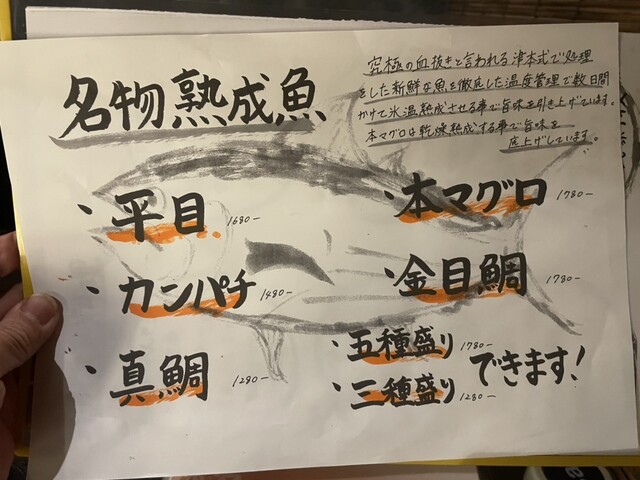 名物熟成魚
究極の血抜きと言われる津本式で処理
をした新鮮な魚を徹底した温度管理で数日間
かけて氷温熟成させる事で旨味を引き上げています。
本マグロは乾燥熟成する事で旨味を
底上げしています。
・平目 1680-
・カンパチ 1480-
・真鯛 1280-
・本マグロ 1780-
・金目鯛 1780-
・五種盛り 1780-
・三種盛り 1280-
できます!